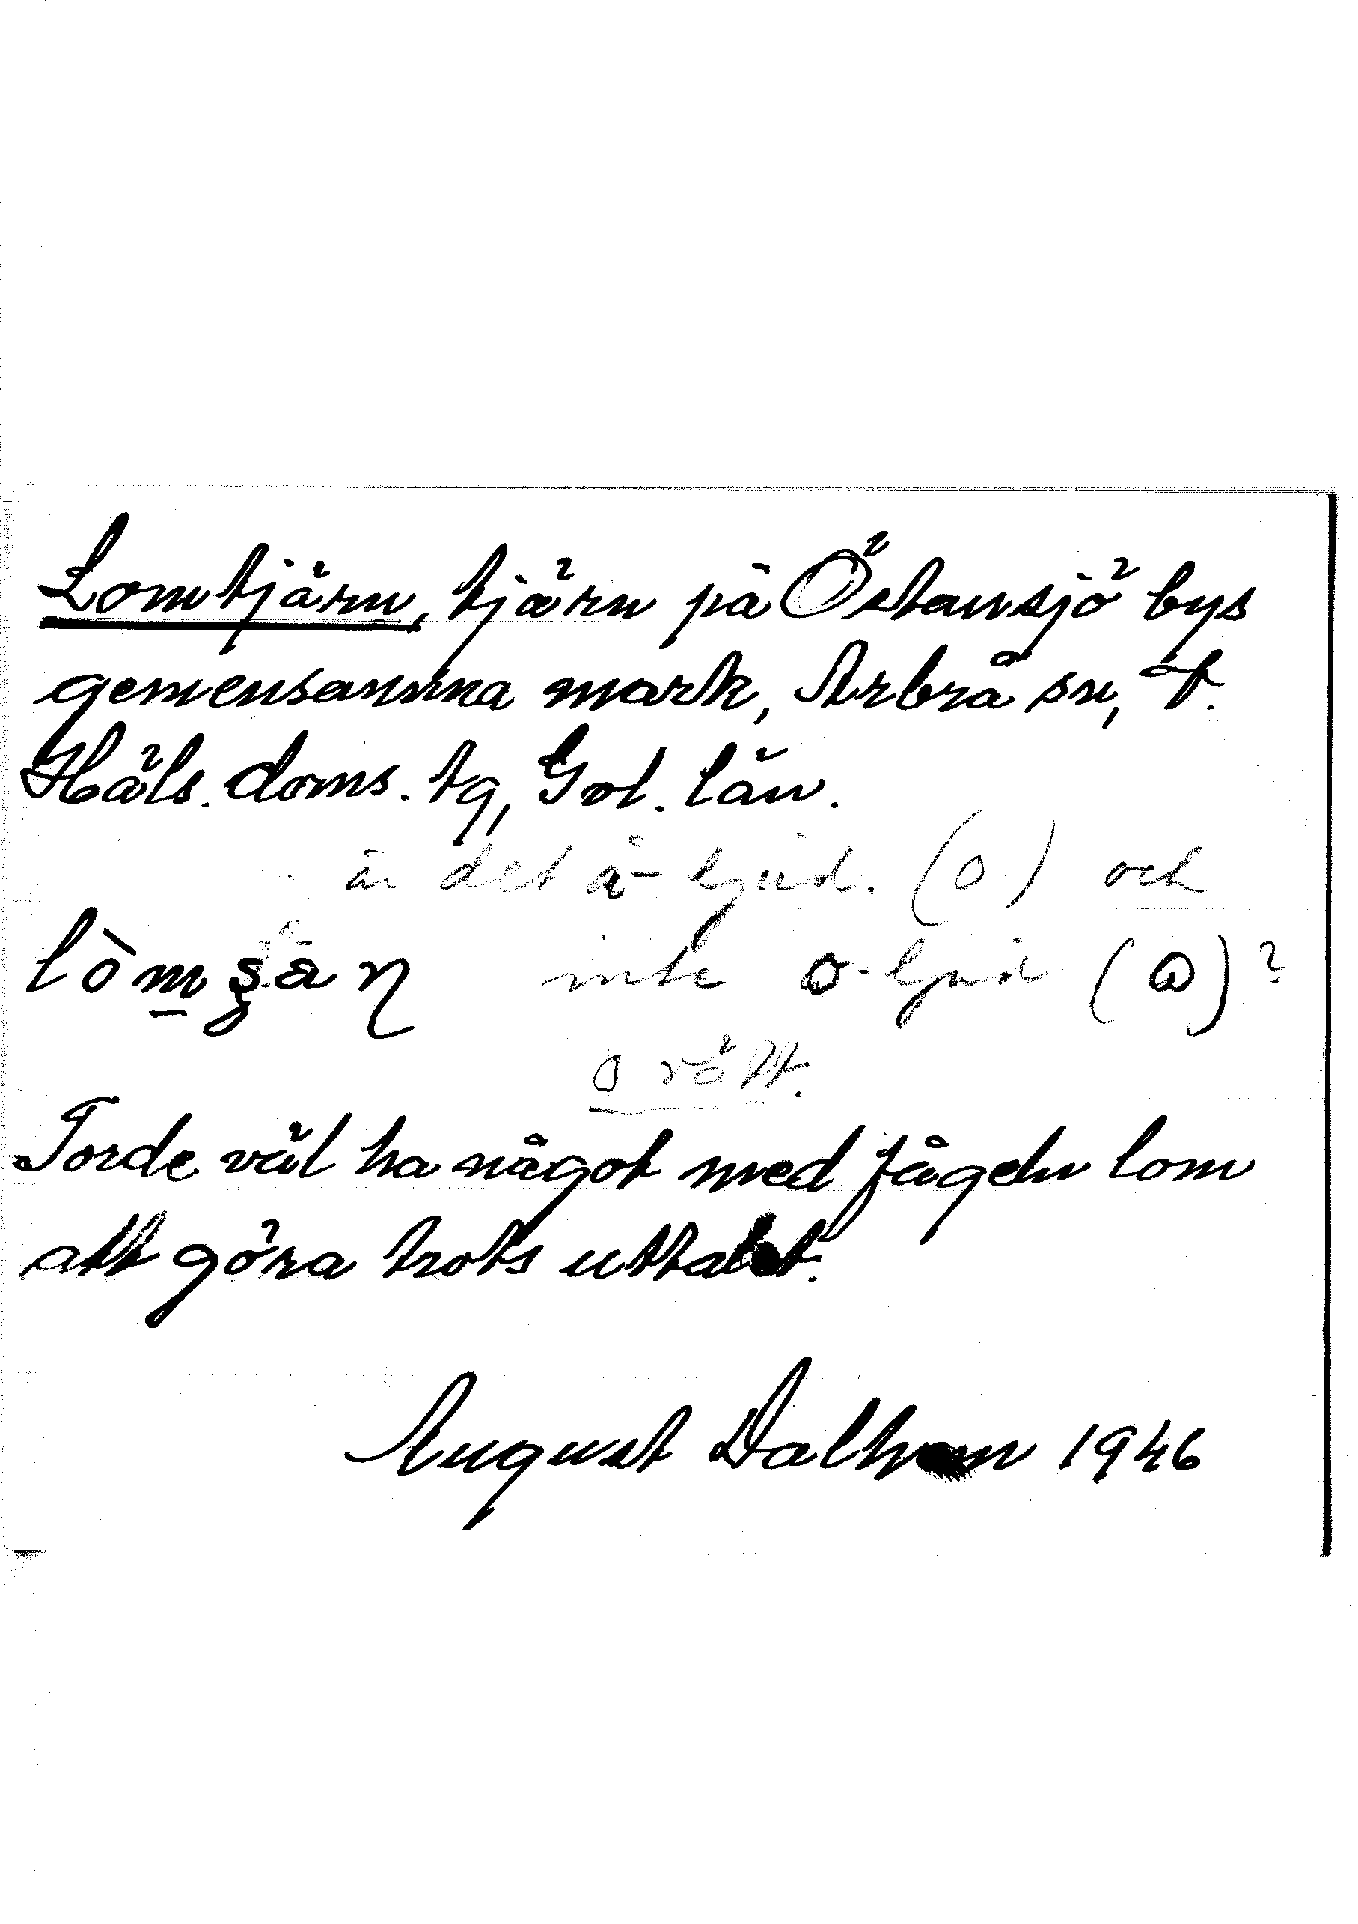 Lomtjärn, tjärn på Östansjö bys
gemensamma mark, Arbrå sn, V.
Häls. doms. tg, Gvl. län.
är det å-ljud. (o) och
lòm̲ʂan inte o-ljud (ɷ)?
o rätt.
Torde väl ha något med fågeln lom
att göra trots uttalet.
August Dalhem 1946